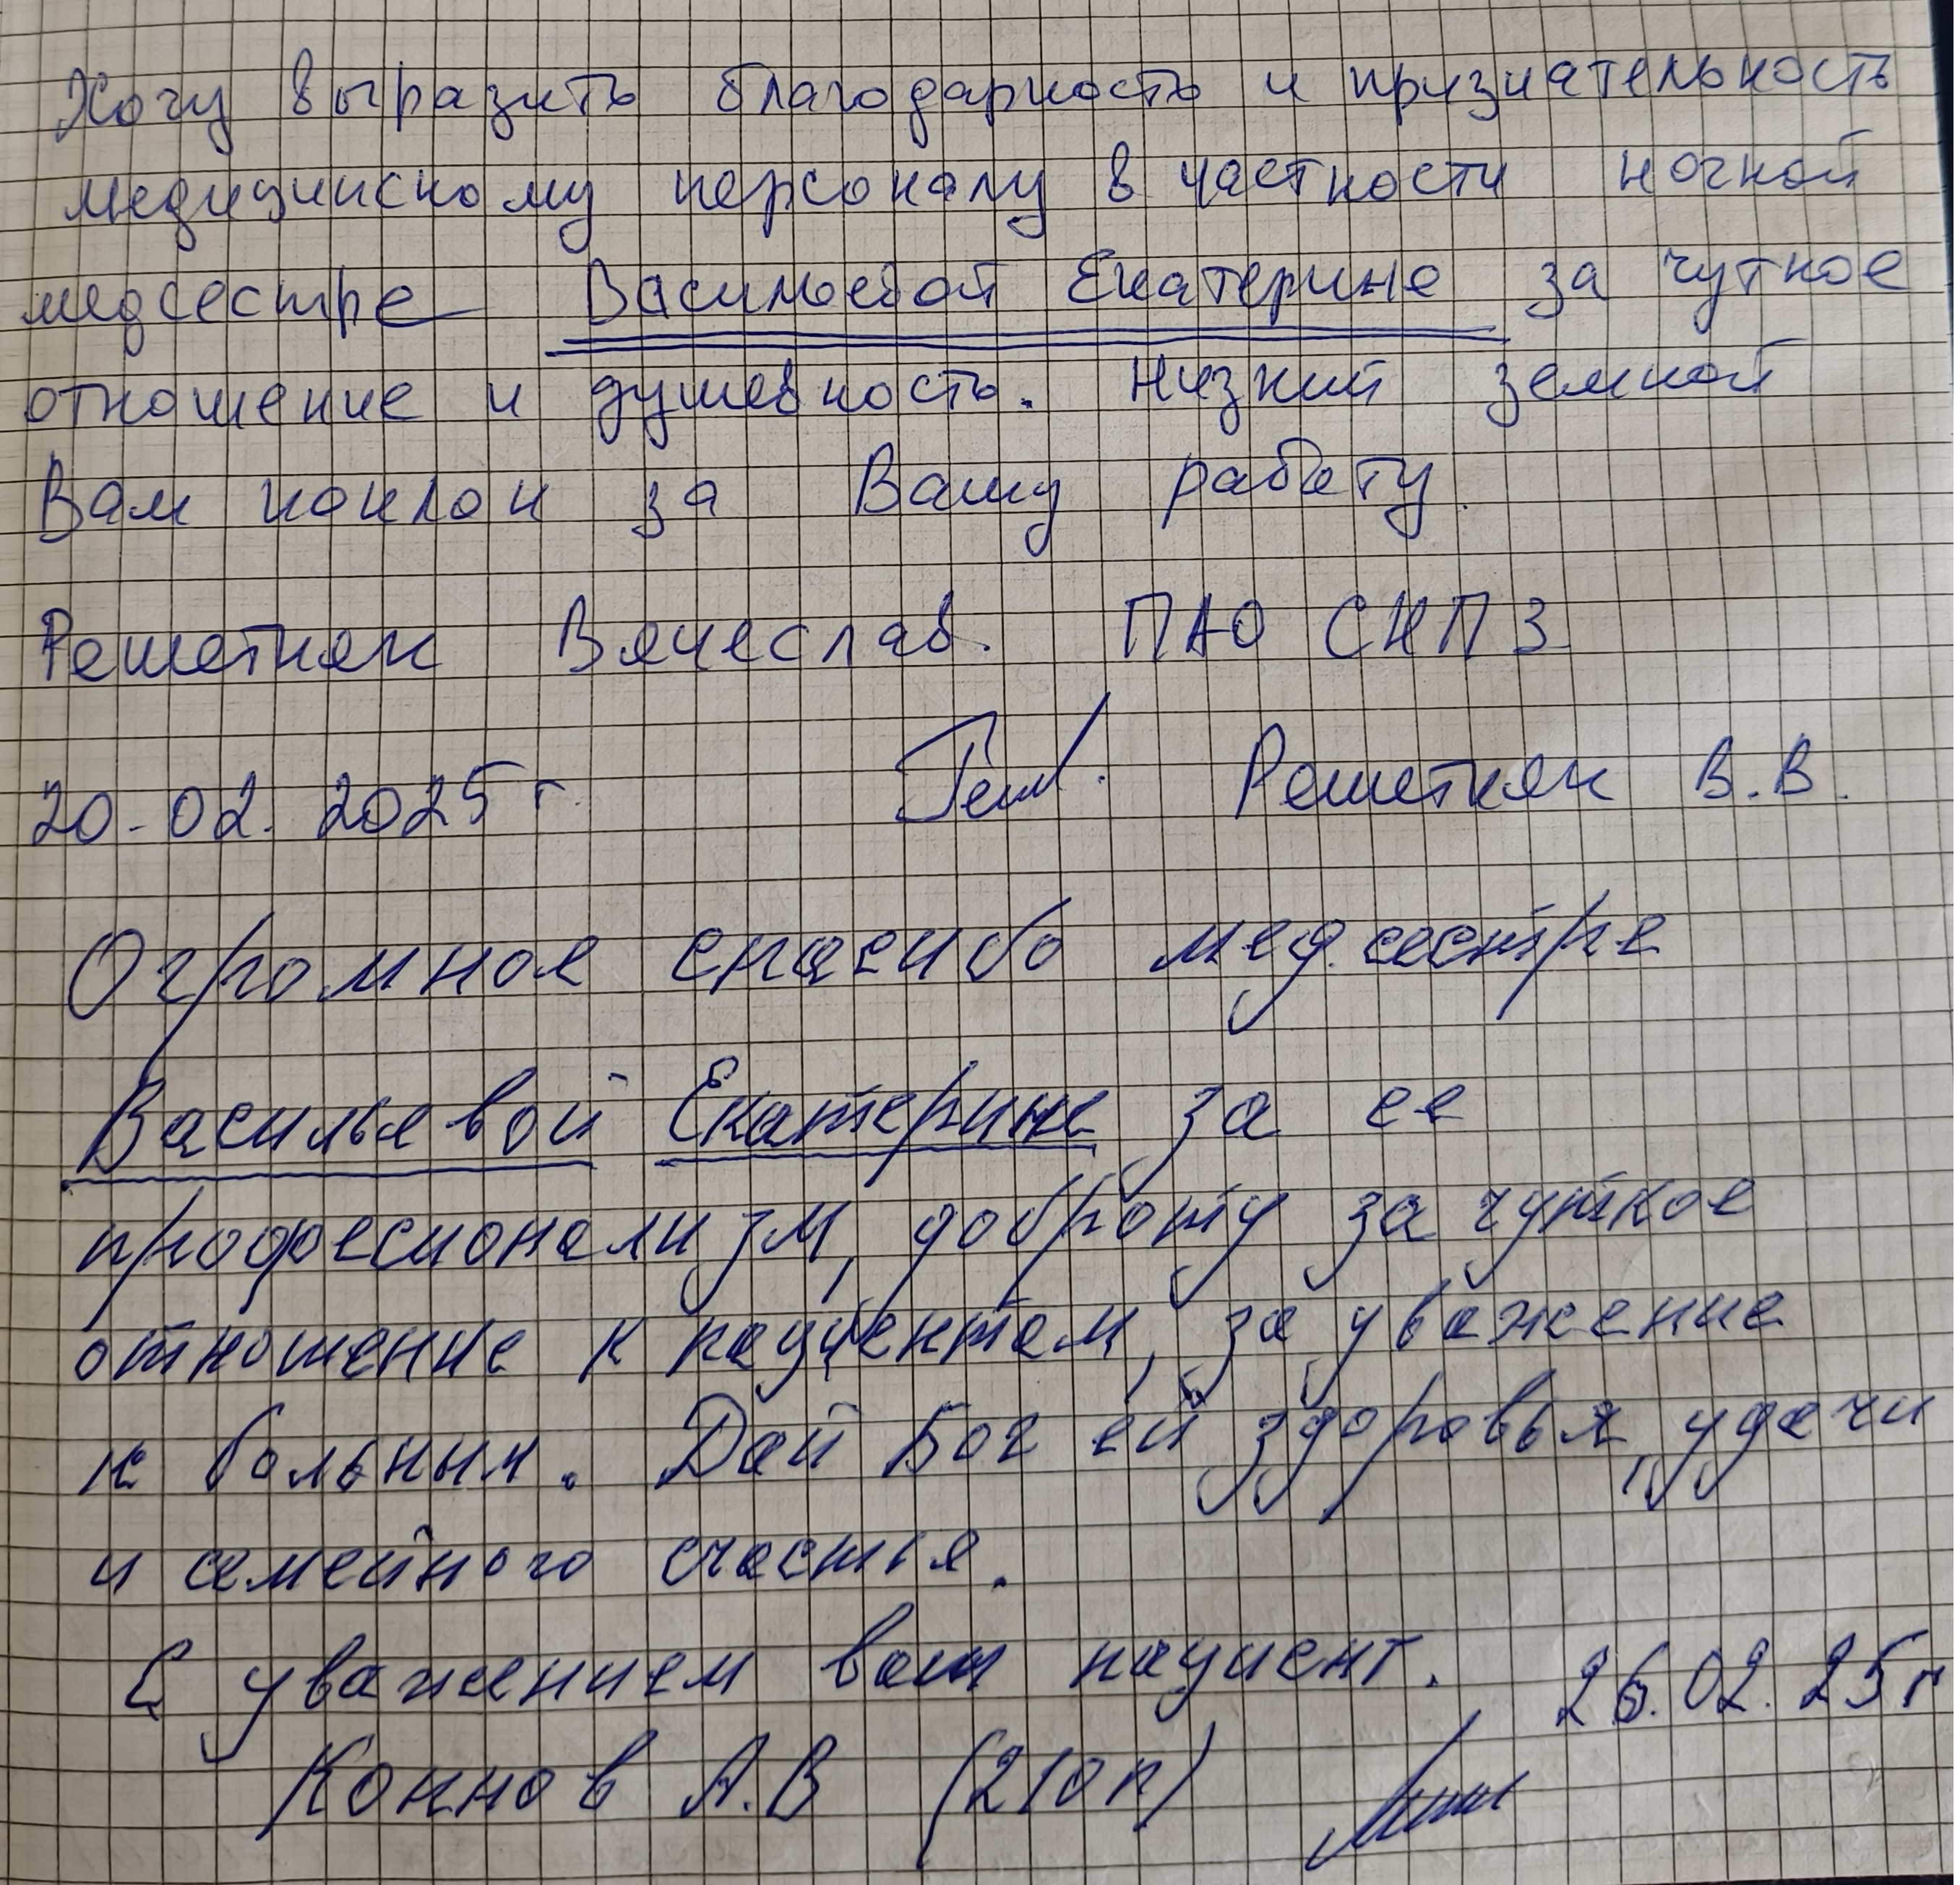 Хочу выразить благодарность и признательность
медицинскому персоналу в частности ночной
медсестре Васильевой Екатерине за чуткое
отношение и душевность. Низкий земной
Вам поклон за Вашу работу.
Решетняк Вячеслав. ПАО СНПЗ
20.02.2025 г. Решетняк В.В.
Огромное спасибо мед.сестре
Васильевой Екатерине за ее
профессионализм, доброту за чуткое
отношение к пациентам, за уважение
к больным. Дай Бог ей здоровья, удачи
и семейного счастья.
С уважением ваш пациент. 26.02.25г
Коннов А.В (210п)